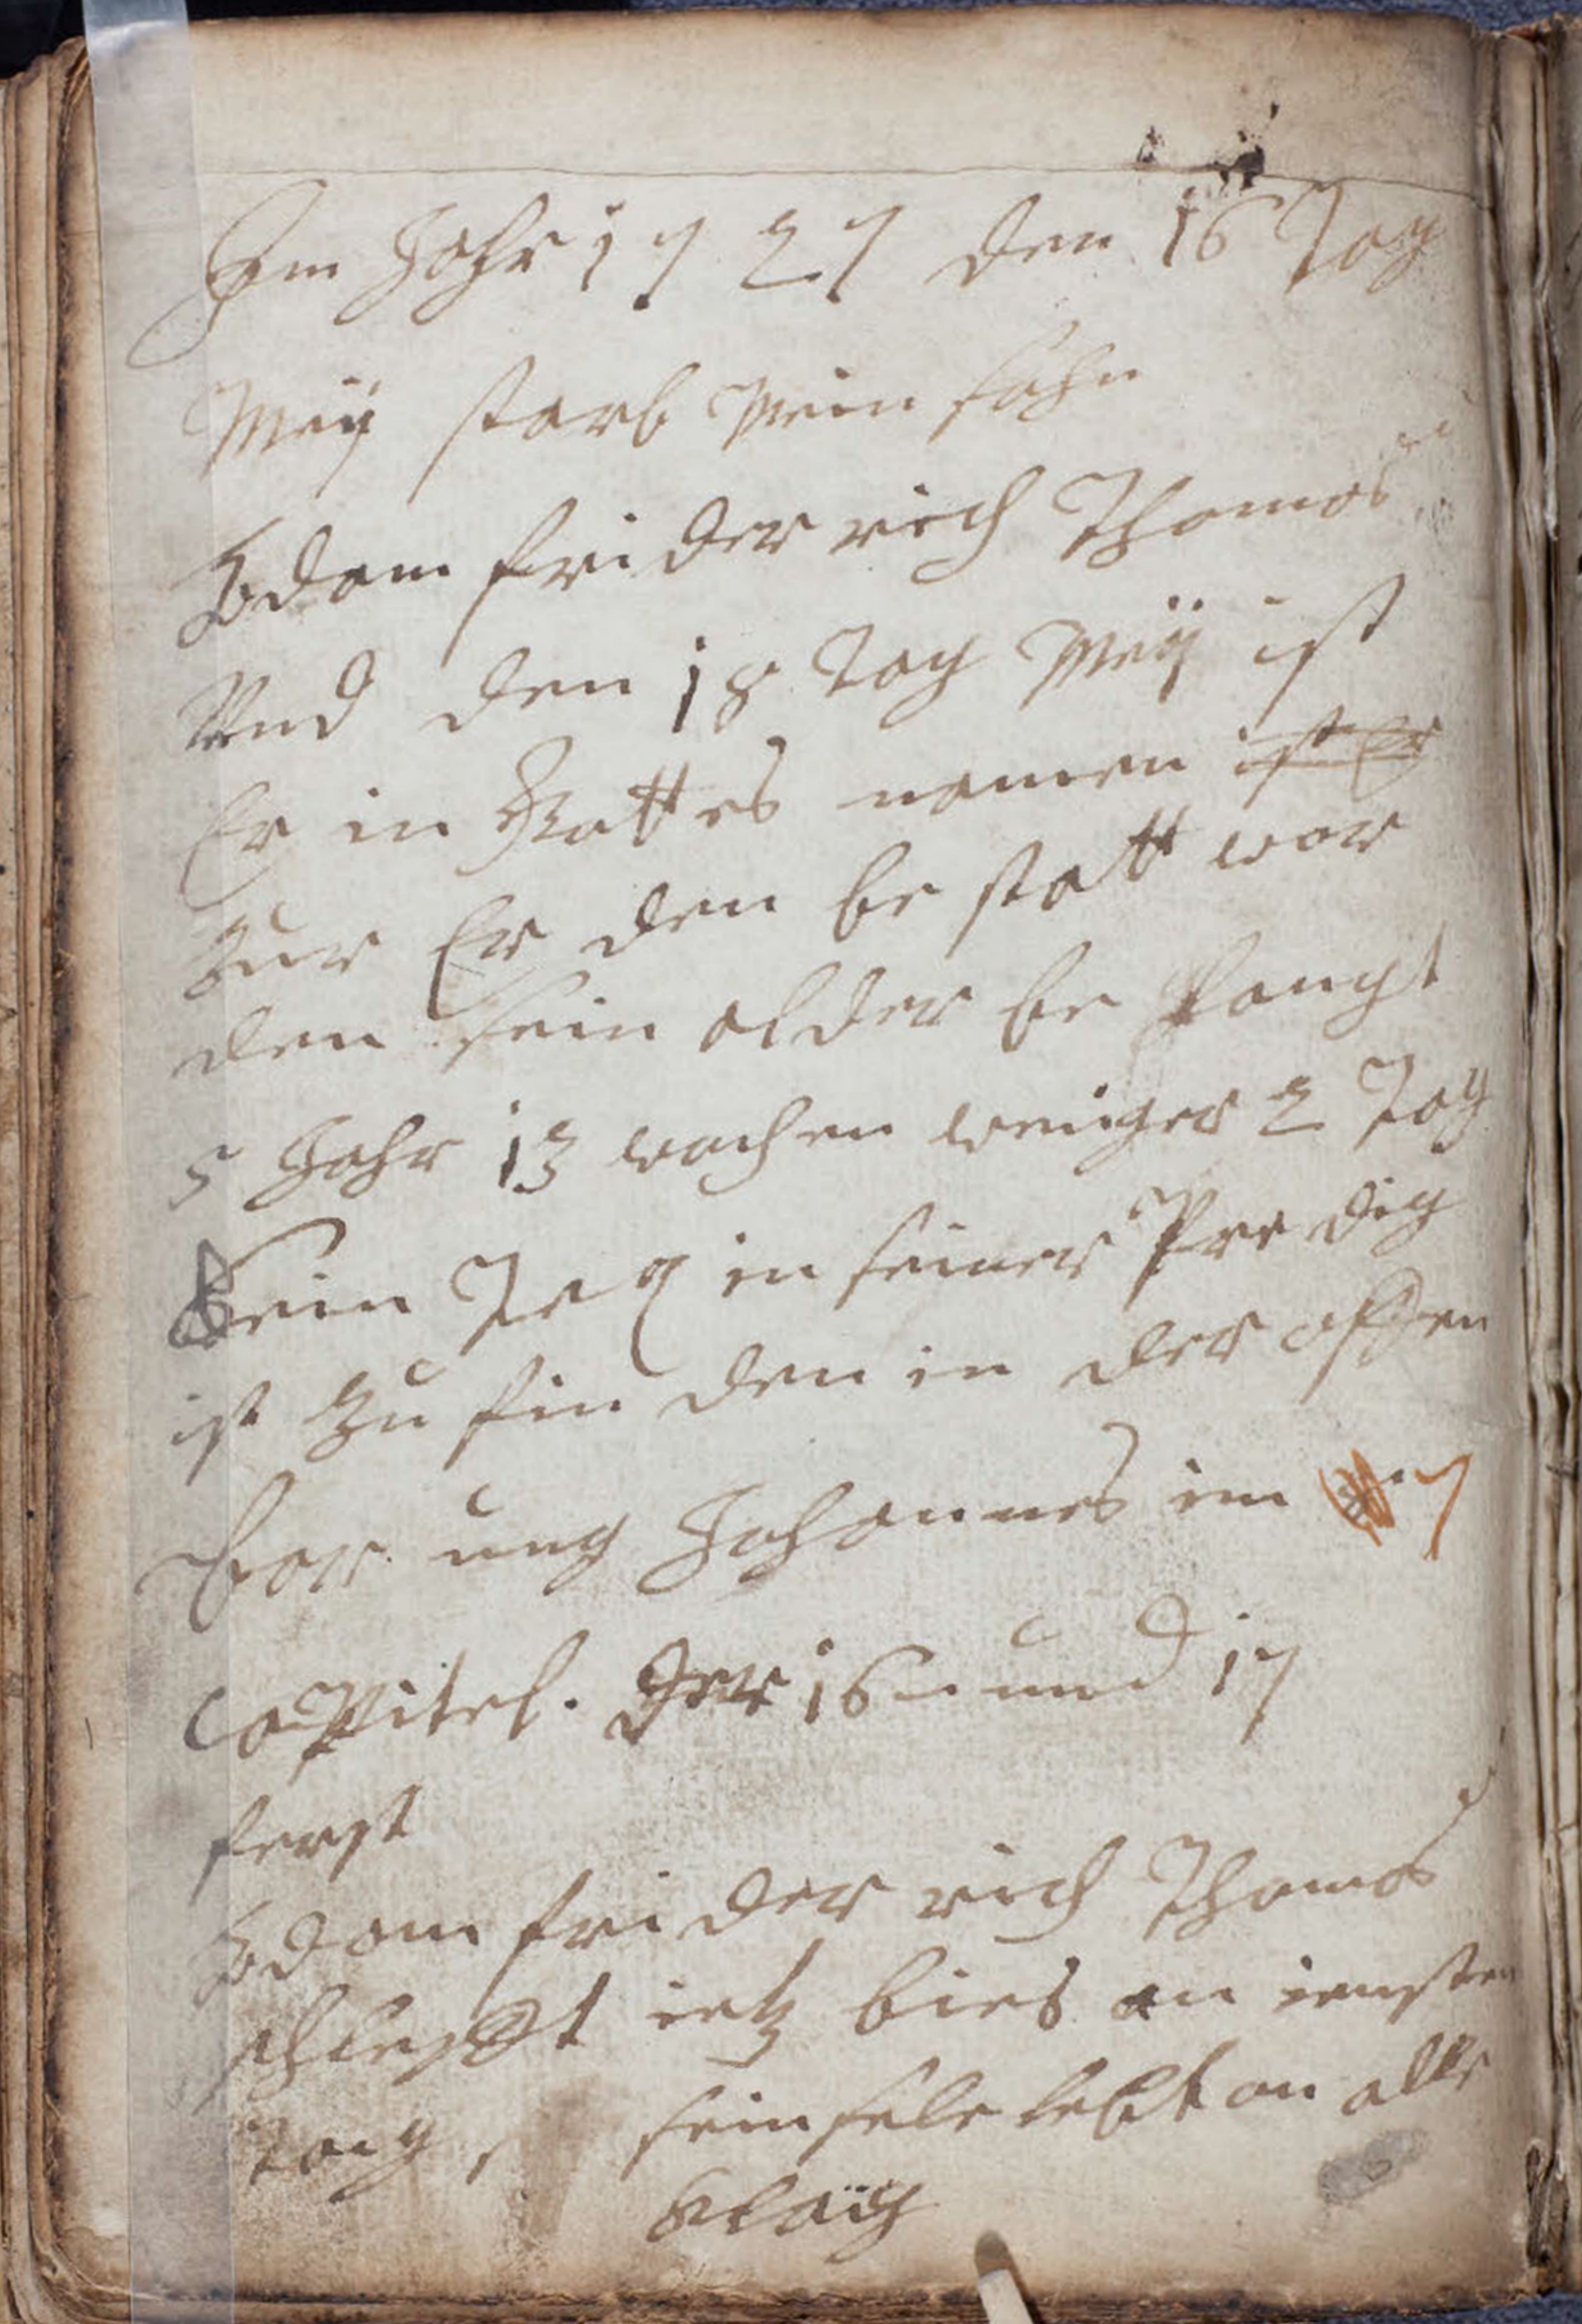 Im Jahr 1727 den 16 Tag
Meÿ starb Mein sohn
Adam friderrich Thomas
Und den 18 Tag Meÿ ist
Er in Gottes namen ist Er
zur Erden be statt wor
den sein alder be langt
5 Jahr 13 wochen weniger 2 Tag
Sein Tex in seiner Predig
ist zu fin den in der offen
bar ung Johannes im 7
CaPitel. Der 16 und 17
ferst
Adam fri der rich Thomas
schlefft ietz bies an iengsten
tag, sein sele lebt an alle
Klaÿ